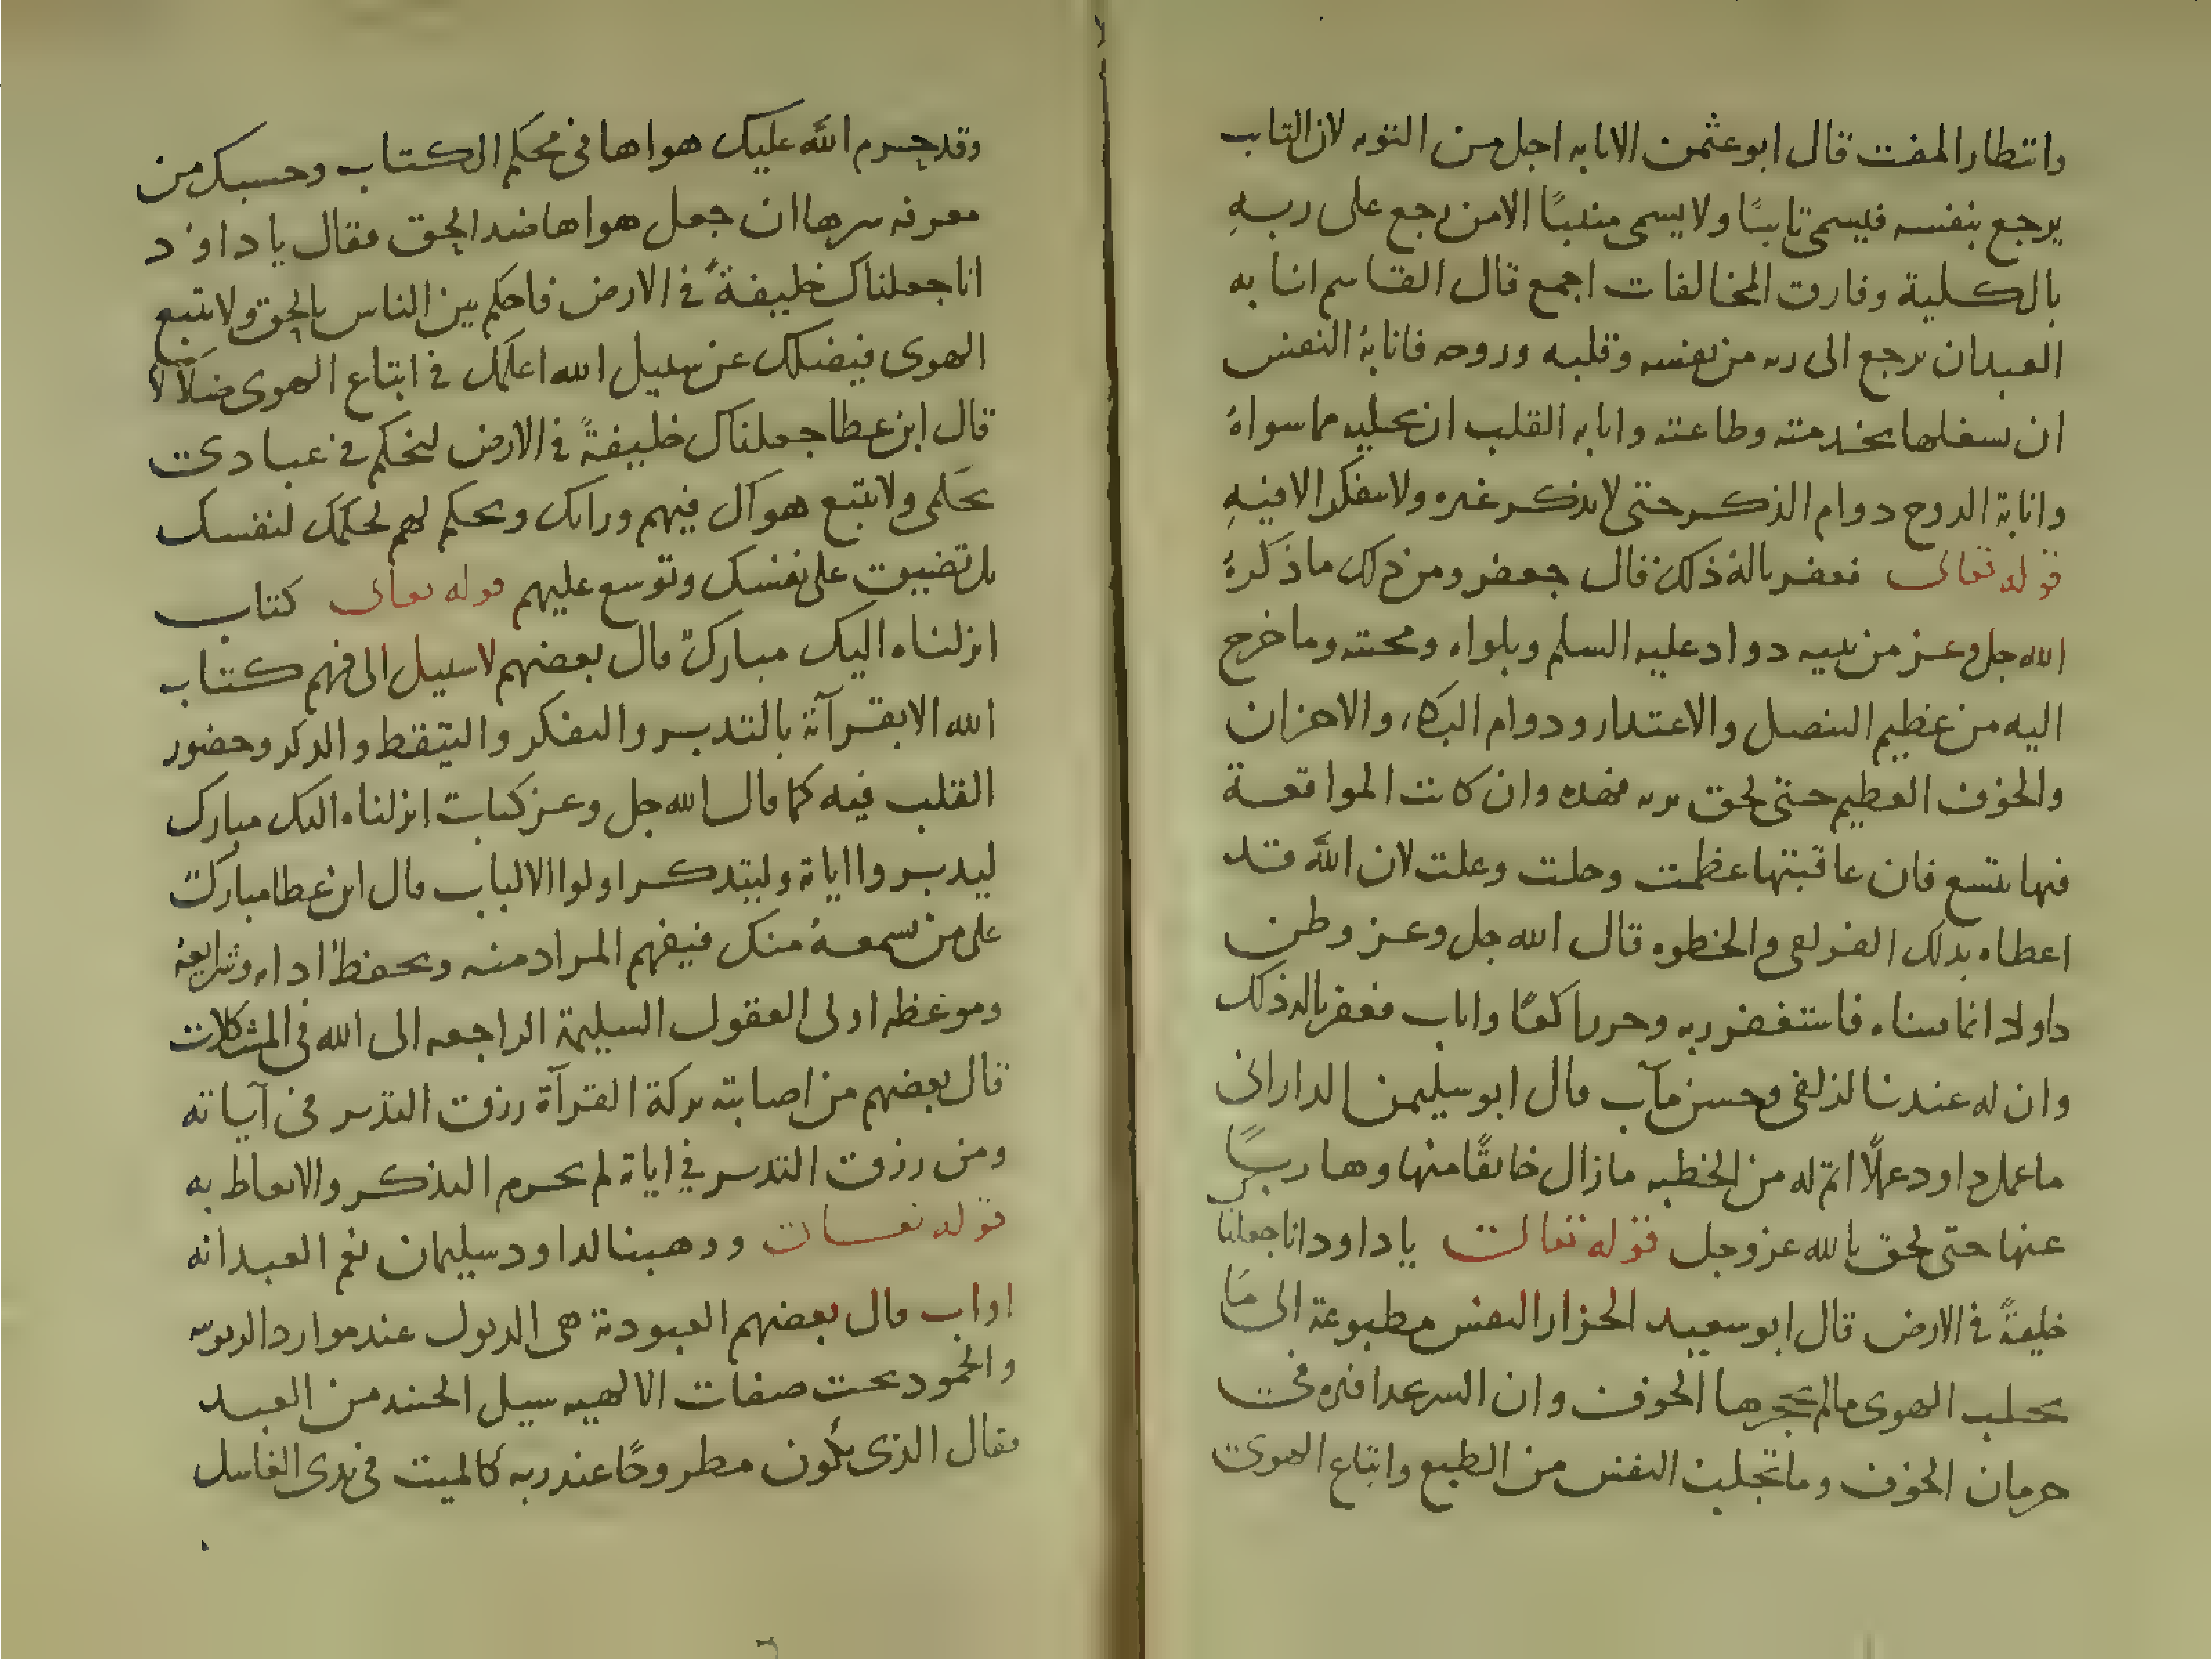 وانتظار المقت قال ابو عثمن الانابه اجل من التوبه لان التايب
يرجع بنفسه فيسمى تايبًا ولا يسمى منيبًا الا من رجع على ربهِ
بالكلية وفارق المخالفات اجمع قال القاسم انابه
العبد ان يرجع الى ربه من نفسه وقلبه وروحه فانابة النفس
ان يشغلها بخدمته وطاعته وانابه القلب ان يخليه مما سواهُ
وانابة الروح دوام الذكر حتى لا يذكر غيره ولا يتفكر الا فيهِ
قوله تعالى فغفرنا له ذلك قال جعفر ومن ذلك ما ذكرهُ
الله جل وعز من نبيه دواد عليه السلم وبلواه ومحنته وما خرج
اليه من عظيم التنصل والاعتدار ودوام البكاء والاحزان
والخوف العظيم حتى لحق بربه وان كانت المواقعة
فيها يتسع فان عاقبتها عظمت وجلت وعلت لان الله قد
اعطاه بدلك الزلفى والخطوه قال الله جل وعز وظن
داود انما فتناه فاستغفر ربه وخر راكعًا واناب فغفرنا له ذلك
وان له عندنا لزلفى وحسن مآب قال ابو سليمن الدارانى
ما عمل داود عملًا اتم له من الخطيه ما زال خايفًا منها وهاربًا
عنها حتى لحق بالله عز وجل قوله تعالى يا داود انا جعلناك
خليفةً في الارض قال ابو سعيد الخزاز النفس مطبوعة الى مَا
يجلب الهوى ما لم يحجزها الخوف وان
حرمان الخوف وما تجلبت النفس من الطبع واتباع الهوى
وقد حرم الله عليك هواها في محكم الكتاب وحسبك من
معرفه سرها ان جعل هواها ضد الحق فقال يا داود
انا جعلناك خليفةً في الارض فاحكم بين الناس بالحق ولا تتبع
الهوى فيضلك عن سبيل الله اعلمك في اتباع الهوى ضلالا
قال ابن عطا جعلناك خليفةً في الارض لتحكم في عبادى
بحكمى ولا تتبع هواك فيهم ورايك وتحكم لهم لحكمك لنفسك
بل تضيق على نفسك وتوسع عليهم قوله تعالى كتاب
انزلناه اليك مبارك قال بعضهم لا سبيل الى فهم كتاب
الله الا بقرآة بالتدبر والتفكر والتيقظ والدكر وحضور
القلب فيه كما قال الله جل وعز كتاب انزلناه اليك مبارك
ليدبروا اياته وليتدكر اولوا الالباب قال ابن عطا مبارك
على من سمعهُ منك فيفهم المراد منه ويحفظ ادابه وشرايعهُ
وموعظه اولى العقول السليمة الراجعه الى الله في المشكلات
قال بعضهم من اصابته بركة القرآة رزق التدبر في آياته
ومن رزق التدبر في اياته لم يحرم التذكر والاتعاظ به
قوله تعالى ووهبنا لداود سليمان نعم العبد انه
اواب قال بعضهم العبودة هى الدبول عند موارد الربوبيه
والخمود تحت صفات الالهيه سيل الجنيد من العبد
فقال الذى يكون مطروحًا عند ربه كالميت في يدى الغاسل